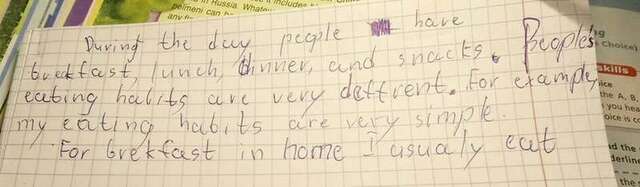 in Russia. Whate
pelmeni can b
During the day people have
brekfast, lunch, dinner, and snacks. People's
eating habits are very deffrent. For example,
my eating habits are very simple.
For brekfast in home I usualy eat
Choice)
skills
the A, B,
you hea
oice is co
nd the
derline
the